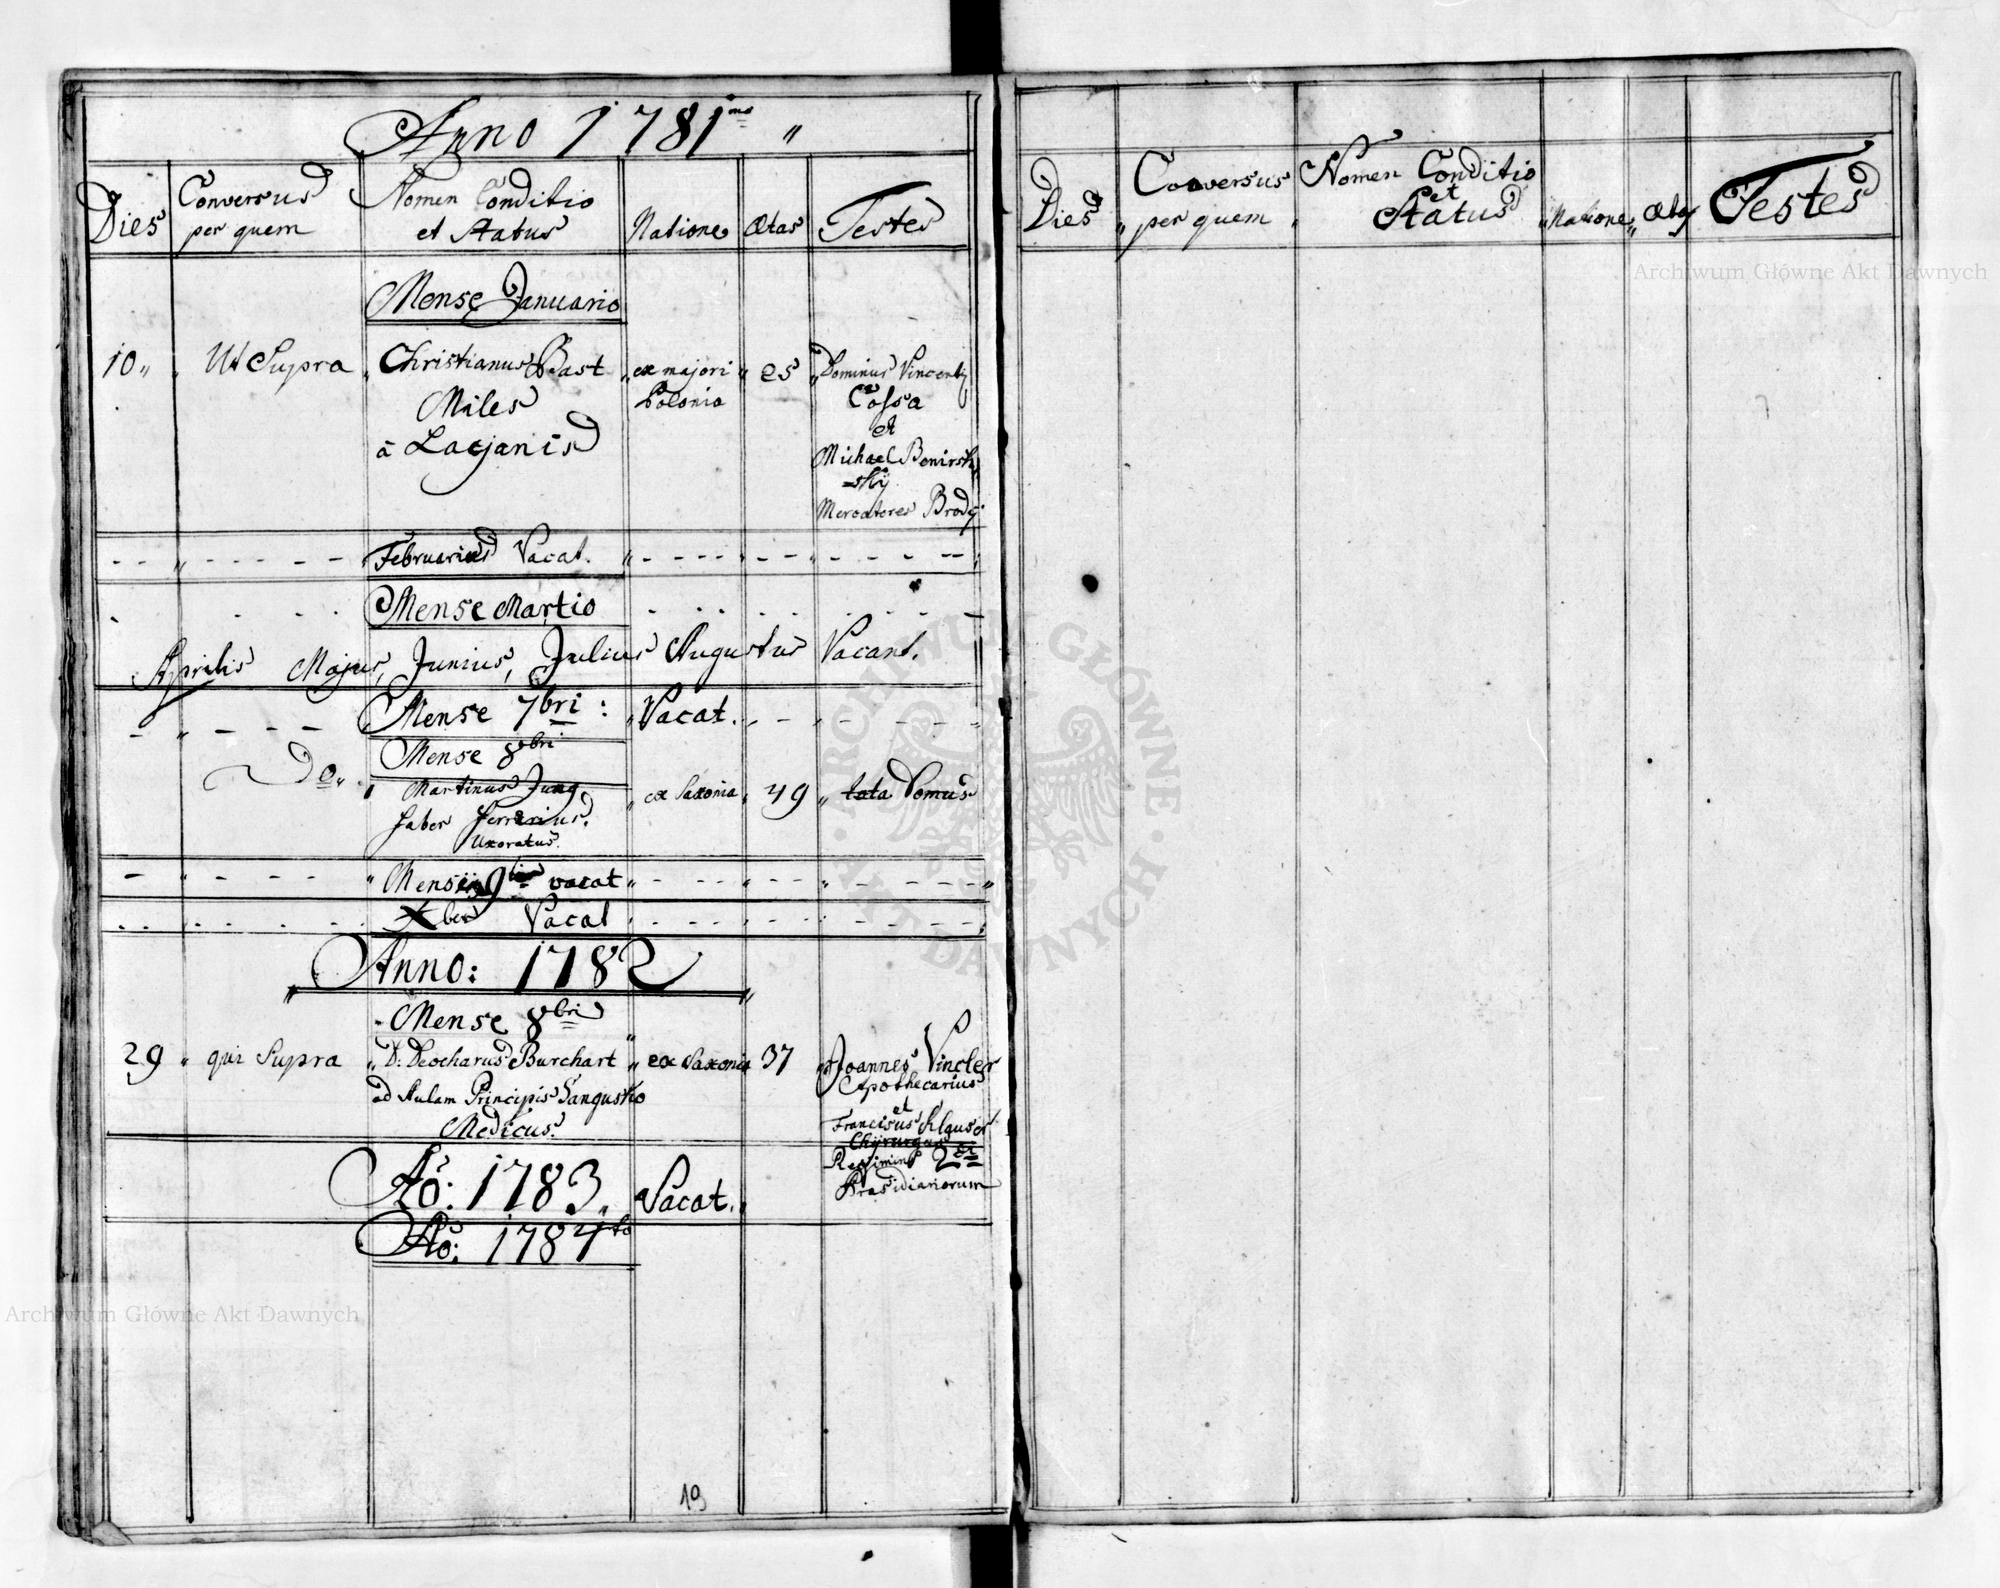 Anno 1781mo "
Dies
Conversus
per quem
Nomen Conditio
et Status
Natione
Ætas
Testes
Mense Januario
10 "
Ut Supra
Christianus Bast
Miles
à Lacjanis
ex majori
Polonia
25
Dominus Vincentÿ
Cossa
et
Michael
-sky
Mercatores Brody
Februarius Vacat.
Mense Martio
Aprilis Majus, Junius, Julius Augustus Vacant.
Mense 7bri : Vacat.
Mense 8bri
Do "
Martinus Jung
faber ferrarius.
Uxoratus.
ex Saxonia
49
tota Domus
Mensis 9bris vacat
Xber Vacat
Anno: 1782
Mense 8bri
29
qui Supra
D: Deocharus Burchart
ad Aulam Principis Sangusko
Medicus.
ex Saxonia
37
Joannes Vincler
Apothecarius
et
Franciscus Klauser
Chyrurgus
Regimin 2di
Præsidiariorum
Ao: 1783 " Vacat.
Ao: 1784to
19
Dies
Conversus
per quem
Nomen Conditio
et
Status
Natione
Ætas
Testes
Archiwum Główne Akt Dawnych
ARCHIWUM GŁÓWNE
AKT DAWNYCH
Archiwum Główne Akt Dawnych